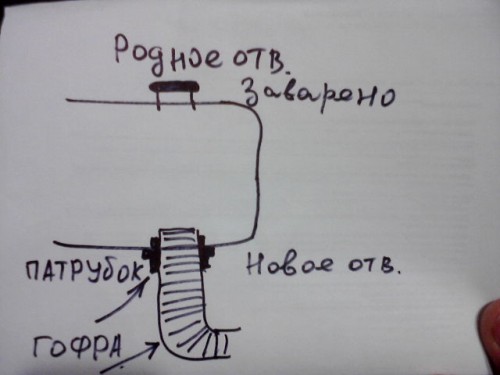 Родное отв.
Заварено
ПАТРУБОК
Новое отв.
ГОФРА